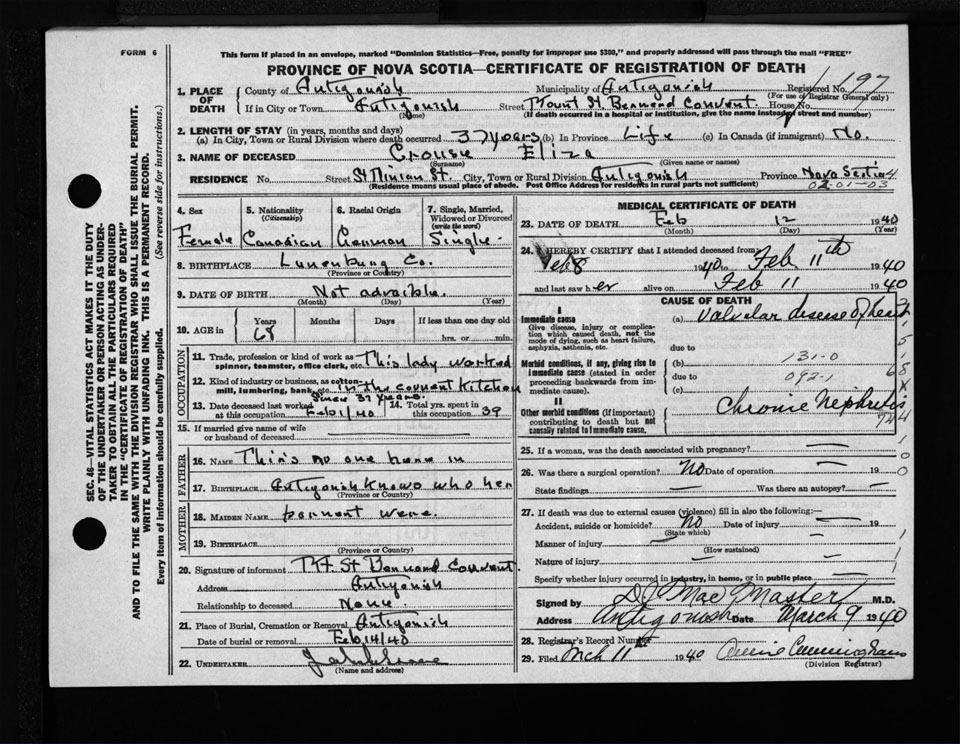 FORM 6
This form if placed in an envelope, marked "Dominion Statistics—Free, penalty for improper use $300," and properly addressed will pass through the mail "FREE"
PROVINCE OF NOVA SCOTIA—CERTIFICATE OF REGISTRATION OF DEATH
1. PLACE OF DEATH
County of Antigonish Municipality of Antigonish Registered No. 197
(For use of Registrar General only)
If in City or Town Antigonish Street Mount St Bernard Convent. House No.
(Name) (If death occurred in a hospital or institution, give the name instead of street and number)
2. LENGTH OF STAY (in years, months and days)
(a) In City, Town or Rural Division where death occurred 37 years (b) In Province Life (c) In Canada (if immigrant) No.
3. NAME OF DECEASED Crouse Eliza
(Surname) (Given name or names)
RESIDENCE No. Street St Ninian St. City, Town or Rural Division Antigonish Province Nova Scotia
(Residence means usual place of abode. Post Office Address for residents in rural parts not sufficient) 02-01-03
4. Sex
Female
5. Nationality (Citizenship)
Canadian
6. Racial Origin
German
7. Single, Married, Widowed or Divorced (write the word)
Single
8. BIRTHPLACE Lunenburg Co.
(Province or Country)
9. DATE OF BIRTH Not advisible.
(Month) (Day) (Year)
10. AGE in Years Months Days If less than one day old
68 hrs. or min.
OCCUPATION
11. Trade, profession or kind of work as spinner, teamster, office clerk, etc. This lady worked
12. Kind of industry or business, as cotton-mill, lumbering, bank, etc. in the convent kitchen
since 37 years.
13. Date deceased last worked at this occupation Feb 1/40 14. Total yrs. spent in this occupation 39
15. If married give name of wife or husband of deceased
FATHER
16. NAME This no one here in
17. BIRTHPLACE Antigonish knows who her
(Province or Country)
MOTHER
18. MAIDEN NAME parrent were.
19. BIRTHPLACE
(Province or Country)
20. Signature of informant Mt. St Bernard Convent.
Address Antigonish
Relationship to deceased None.
21. Place of Burial, Cremation or Removal Antigonish
Date of burial or removal Feb 14/40
22. UNDERTAKER
(Name and address)
MEDICAL CERTIFICATE OF DEATH
23. DATE OF DEATH Feb 12 1940
(Month) (Day) (Year)
24. I HEREBY CERTIFY that I attended deceased from:
Feb 8 1940 to Feb 11th 1940
and last saw her alive on Feb 11 1940
CAUSE OF DEATH
I
Immediate cause
Give disease, injury or complication which caused death, not the mode of dying, such as heart failure, asphyxia, asthenia, etc.
(a) Valvular disease of heart
due to
Morbid conditions, if any, giving rise to immediate cause (stated in order proceeding backwards from immediate cause)
(b) 131-0
due to 092-1
(c)
II
Other morbid conditions (if important) contributing to death but not causally related to immediate cause.
Chronic Nephritis
25. If a woman, was the death associated with pregnancy?
26. Was there a surgical operation? No Date of operation 19
State findings Was there an autopsy?
27. If death was due to external causes (violence) fill in also the following:—
Accident, suicide or homicide? No Date of injury 19
(State which)
Manner of injury
(How sustained)
Nature of injury
Specify whether injury occurred in industry, in home, or in public place
Signed by D J MacMaster M.D.
Address Antigonish Date March 9 1940
28. Registrar's Record Number
29. Filed Mch 11 1940 Annie Cunningham
(Division Registrar)
SEC. 46—VITAL STATISTICS ACT MAKES IT THE DUTY
OF THE UNDERTAKER OR PERSON ACTING AS UNDER-
TAKER TO OBTAIN ALL THE PARTICULARS REQUIRED
IN THE "CERTIFICATE OF REGISTRATION OF DEATH"
AND TO FILE THE SAME WITH THE DIVISION REGISTRAR WHO SHALL ISSUE THE BURIAL PERMIT.
WRITE PLAINLY WITH UNFADING INK. THIS IS A PERMANENT RECORD.
Every item of information should be carefully supplied. (See reverse side for instructions.)